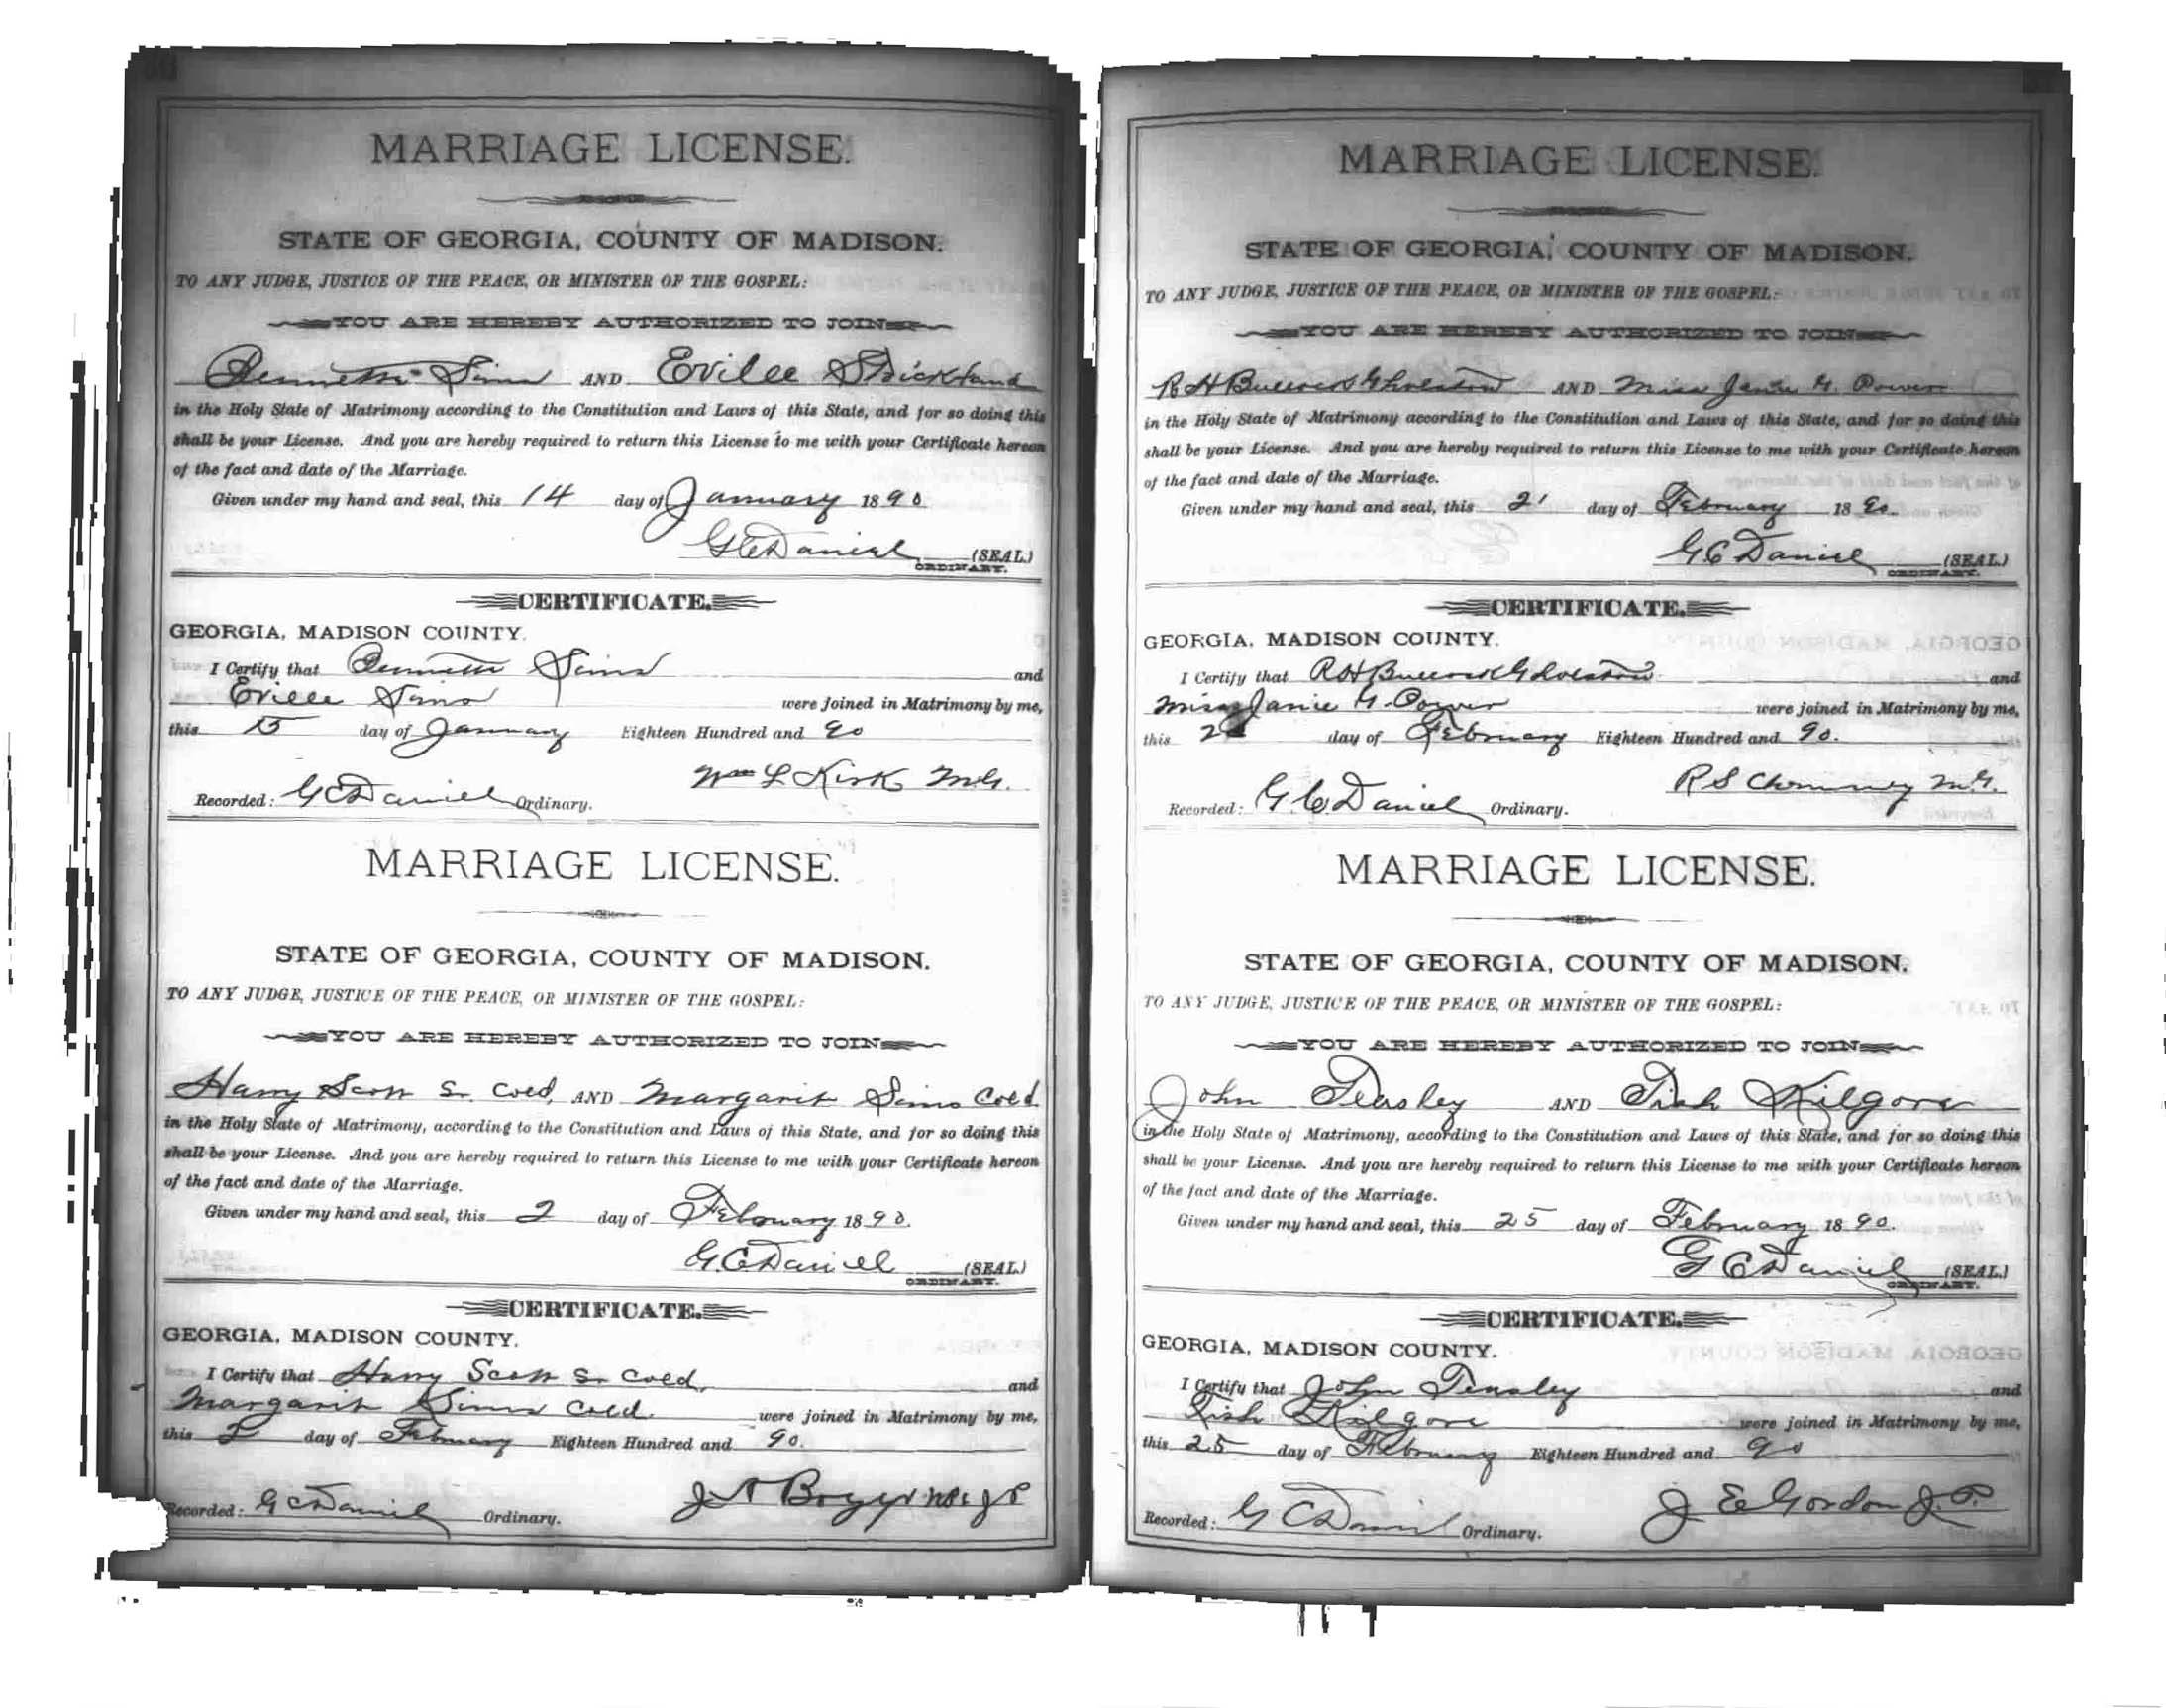 MARRIAGE LICENSE.
STATE OF GEORGIA, COUNTY OF MADISON.
TO ANY JUDGE, JUSTICE OF THE PEACE, OR MINISTER OF THE GOSPEL:
YOU ARE HEREBY AUTHORIZED TO JOIN
Bennette Sims AND Evilee Strickland
in the Holy State of Matrimony according to the Constitution and Laws of this State, and for so doing this
shall be your License. And you are hereby required to return this License to me with your Certificate hereon
of the fact and date of the Marriage.
Given under my hand and seal, this 14 day of January 1890.
G C Daniel (SEAL.)
ORDINARY.
CERTIFICATE.
GEORGIA, MADISON COUNTY.
I Certify that Bennette Sims and
Evilee Sims were joined in Matrimony by me,
this 15 day of January Eighteen Hundred and 90
Wm L Kirk M.G.
Recorded: G C Daniel Ordinary.
MARRIAGE LICENSE.
STATE OF GEORGIA, COUNTY OF MADISON.
TO ANY JUDGE, JUSTICE OF THE PEACE, OR MINISTER OF THE GOSPEL:
YOU ARE HEREBY AUTHORIZED TO JOIN
Harry Scott Sr. Cold, AND Margarit Sims Cold
in the Holy State of Matrimony, according to the Constitution and Laws of this State, and for so doing this
shall be your License. And you are hereby required to return this License to me with your Certificate hereon
of the fact and date of the Marriage.
Given under my hand and seal, this 2 day of February 1890.
G. C. Daniel (SEAL.)
ORDINARY.
CERTIFICATE.
GEORGIA, MADISON COUNTY.
I Certify that Harry Scott Sr Cold, and
Margarit Sims Cold. were joined in Matrimony by me,
this 2 day of February Eighteen Hundred and 90.
Recorded: G C Daniel Ordinary.
MARRIAGE LICENSE.
STATE OF GEORGIA, COUNTY OF MADISON.
TO ANY JUDGE, JUSTICE OF THE PEACE, OR MINISTER OF THE GOSPEL:
YOU ARE HEREBY AUTHORIZED TO JOIN
R H Bullock Gholston AND Miss Janie G. Power
in the Holy State of Matrimony according to the Constitution and Laws of this State, and for so doing this
shall be your License. And you are hereby required to return this License to me with your Certificate hereon
of the fact and date of the Marriage.
Given under my hand and seal, this day of February 1890.
G C Daniel (SEAL.)
ORDINARY.
CERTIFICATE.
GEORGIA, MADISON COUNTY.
I Certify that R H Bullock Gholston and
Miss Janie G. Power were joined in Matrimony by me,
this day of February Eighteen Hundred and 90.
R S M.G.
Recorded: G. C. Daniel Ordinary.
MARRIAGE LICENSE.
STATE OF GEORGIA, COUNTY OF MADISON.
TO ANY JUDGE, JUSTICE OF THE PEACE, OR MINISTER OF THE GOSPEL:
YOU ARE HEREBY AUTHORIZED TO JOIN
John Teasley AND Tish Kilgore
in the Holy State of Matrimony, according to the Constitution and Laws of this State, and for so doing this
shall be your License. And you are hereby required to return this License to me with your Certificate hereon
of the fact and date of the Marriage.
Given under my hand and seal, this 25 day of February 1890.
G C Daniel (SEAL.)
ORDINARY.
CERTIFICATE.
GEORGIA, MADISON COUNTY.
I Certify that John Teasley and
Tish Kilgore were joined in Matrimony by me,
this 25 day of February Eighteen Hundred and 90
J E Gordon J. P.
Recorded: G C Daniel Ordinary.